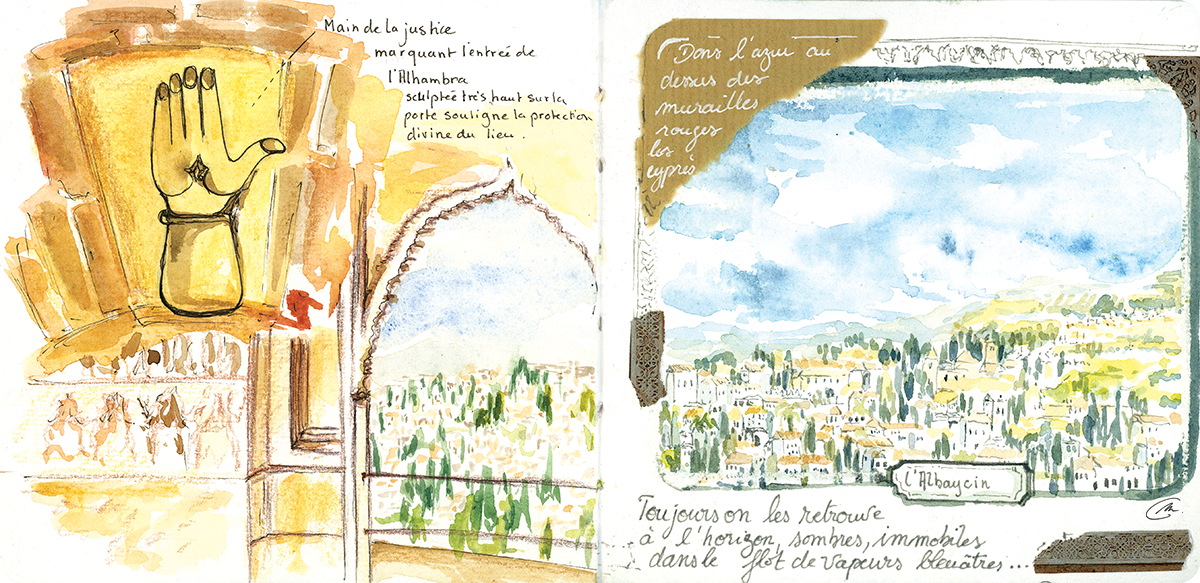 Main de la justice
marquant l'entrée de
l'Alhambra
sculptée très haut sur la
porte souligne la protection
divine du lieu.
Dans l'azur au
dessus des
murailles
rouges
les
cyprès
l'Albaycin
Toujours on les retrouve
à l'horizon, sombres, immobiles
dans le flot de vapeurs bleuâtres...